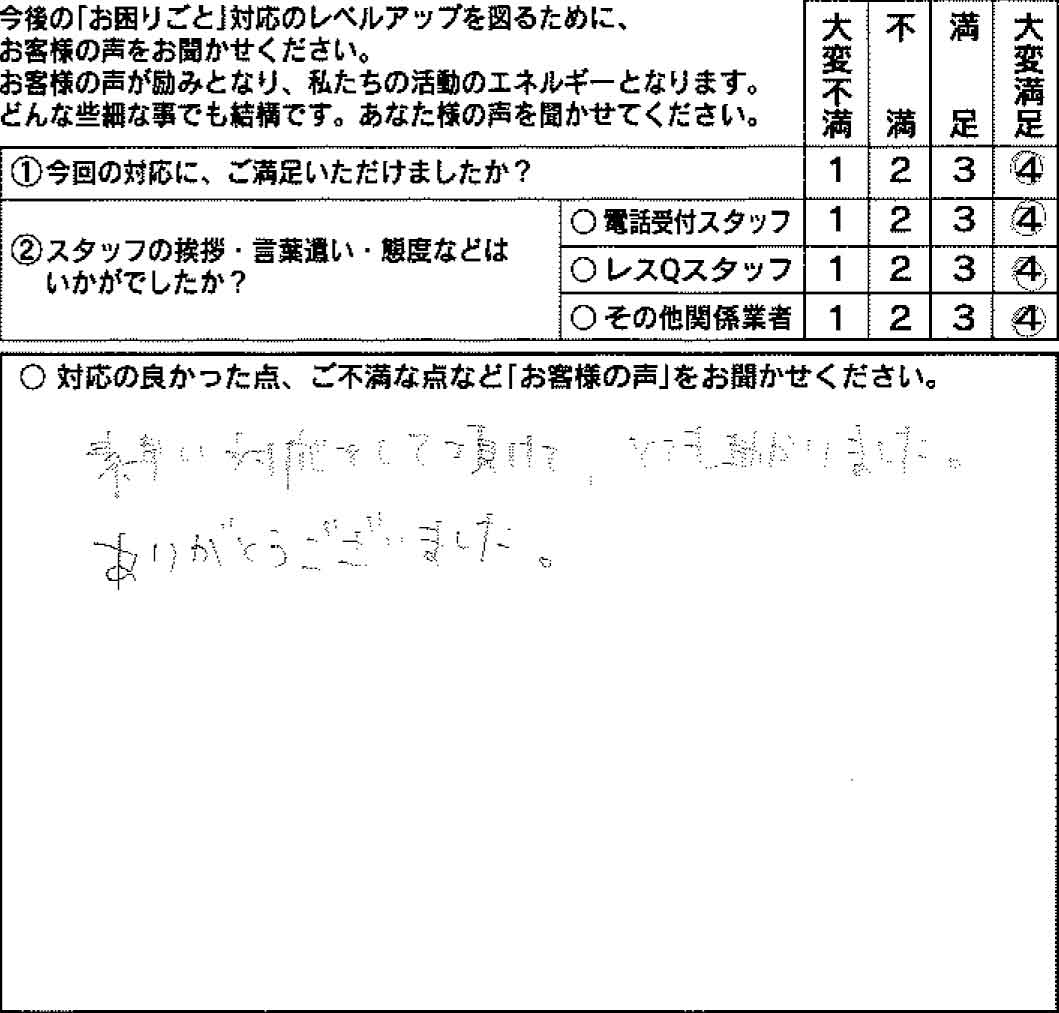 今後の「お困りごと」対応のレベルアップを図るために、
お客様の声をお聞かせください。
お客様の声が励みとなり、私たちの活動のエネルギーとなります。
どんな些細な事でも結構です。あなた様の声を聞かせてください。
大変不満 不満 満足 大変満足
①今回の対応に、ご満足いただけましたか? 1 2 3 4
②スタッフの挨拶・言葉遣い・態度などは
いかがでしたか?
○ 電話受付スタッフ 1 2 3 4
○ レスQスタッフ 1 2 3 4
○ その他関係業者 1 2 3 4
○ 対応の良かった点、ご不満な点など「お客様の声」をお聞かせください。
素早い対応をして頂けて、とても助かりました。
ありがとうございました。